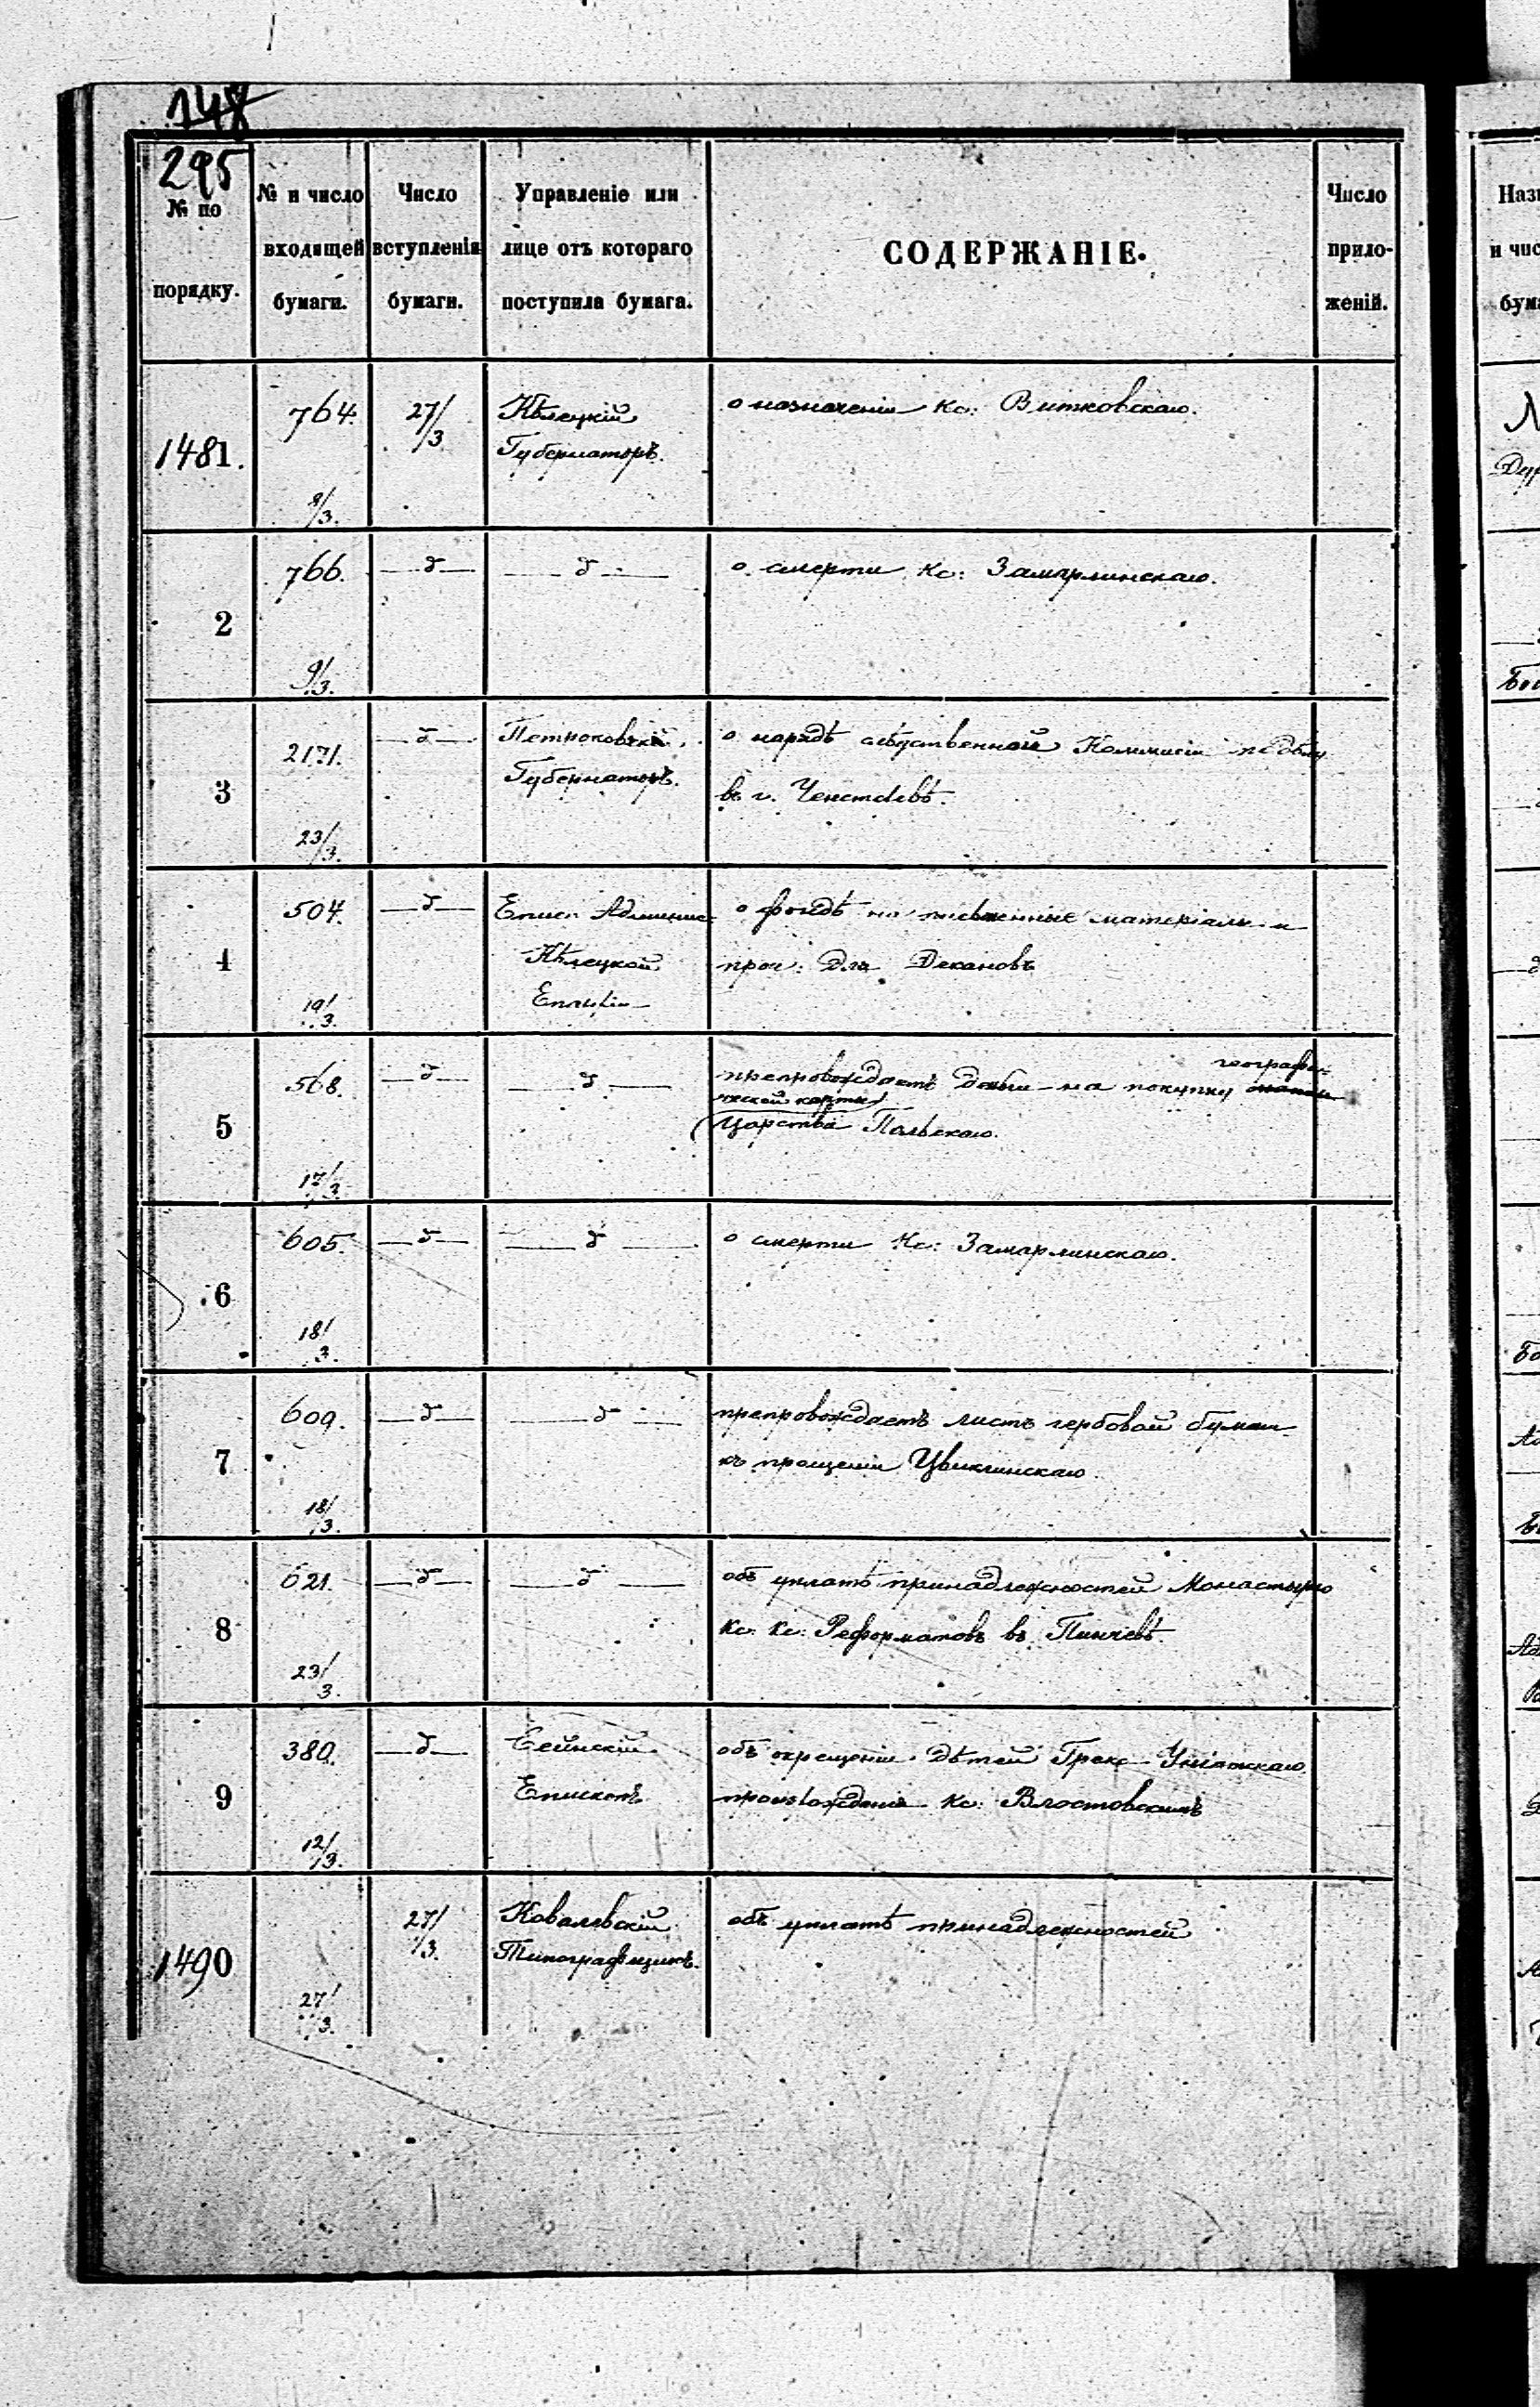 148
295
№ по
порядку.
№ и число
входящей
бумаги.
Число
вступленія
бумаги.
Управленіе или
лице отъ котораго
поступила бумага.
СОДЕРЖАНІЕ.
Число
прило-
женій.
1481.
764.
9/3.
27/3
Кѣлецкій
Губернаторъ.
о назначеніи Кс: Витковскаго.
2
766.
9/3.
—д—
—д—
о смерти Кс: Замарлинскаго.
3
2171.
23/3.
—д—
Петроковскій
Губернаторъ.
о нарядѣ слѣдственной Коммисіи по дѣлу
въ г. Ченстоховѣ.
4
504.
19/3.
—д—
Епис. Админис.
Кѣлецкой
Епархіи
о фондѣ на письменные матеріалы и
проч: для Декановъ
5
568.
17/3
—д—
—д—
географи-
препровождаетъ на покупку
ческой карты
Царства Польскаго.
6
605.
18/3.
—д—
—д—
о смерти Кс: Замарлинскаго.
7
609.
18/3.
—д—
—д—
препровождаетъ листъ гербовой бумаги
къ прошенію Цвиклинскаго.
8
621.
23/3.
—д—
—д—
объ уплатѣ принадлежностей Монастырю
Кс: Кс: Реформатовъ въ Пинчовѣ.
9
380.
12/3.
—д—
Сейнскій
Епископъ.
объ окрещеніи дѣтей Греко-Уніатскаго
происхожденія Кс: Влостовскимъ
1490
27/3.
27/3.
Ковалевскій
Типографщикъ.
объ уплатѣ принадлежностей